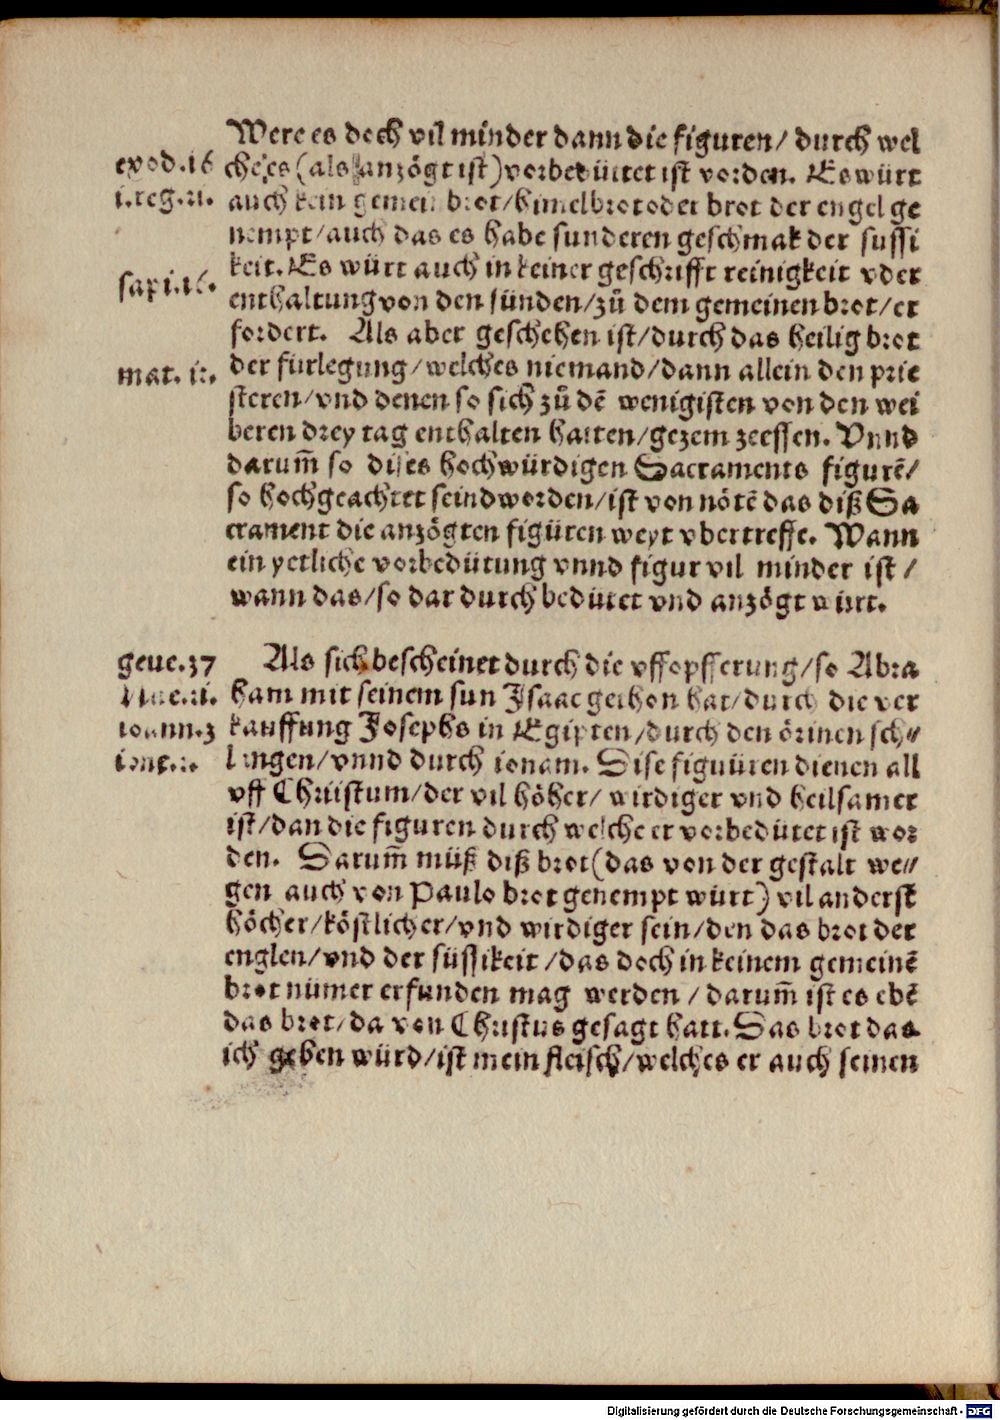 Were es doch vil minder dann die figuren/ durch wel
exod.16
che es (als anzögt ist) vorbedütet ist worden. Es würt
i.reg.21.
auch kein gemein brot/ himelbrot oder brot der engel ge
nempt/ auch das es habe sunderen geschmak der sussi
keit. Es würt auch in keiner geschrifft reinigkeit vder
sapi.16.
enthaltung von den sünden/ zů dem gemeinen brot/ er
fordert. Als aber geschehen ist/ durch das heilig brot
mat. 12.
der fürlegung/ welches niemand/ dann allein den prie
steren/ vnd denen so sich zů dē wenigisten von den wei
beren drey tag enthalten hatten/ gezem zeessen. Vnnd
darum̄ so dises hochwürdigen Sacraments figurē/
so hochgeachtet seind worden/ ist von nötē das diß Sa
crament die anzögten figüren weyt vbertreffe. Wann
ein yetliche vorbedütung vnnd figur vil minder ist /
wann das/ so dardurch bedütet vnd anzögt würt.
geue.37
Als sich bescheinet durch die vffopfferung/ so Abra
ham mit seinem sun Isaac gethon hat/ durch die ver
ioann.3
kauffung Josephs in Egipten/ durch den örinen sch⸗
langen/ vnnd durch ionam. Dise figuüren dienen all
vff Chriistum/ der vil höher/ wirdiger vnd heilsamer
ist/ dan die figuren durch welche er vorbedütet ist wor
den. Darum̄ müß diß brot (das von der gestalt we⸗
gen auch von Paulo brot genempt würt) vil anderst
höcher/ köstlicher/ vnd wirdiger sein/ den das brot der
englen/ vnd der süssikeit / das doch in keinem gemeinē
brot nümer erfunden mag werden / darum̄ ist es ebē
das brot/ da von Christus gesagt hatt. Das brot das
ich geben würd/ ist mein fleisch/ welches er auch seinen
Digitalisierung gefördert durch die Deutsche Forschungsgemeinschaft - DFG